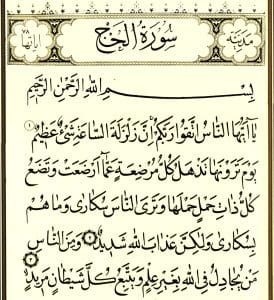 مدنية سورة الحج آياتها ٧٨
بِسْمِ اللَّهِ الرَّحْمَٰنِ الرَّحِيمِ
يَا أَيُّهَا النَّاسُ اتَّقُوا رَبَّكُمْ إِنَّ زَلْزَلَةَ السَّاعَةِ شَيْءٌ عَظِيمٌ ١
يَوْمَ تَرَوْنَهَا تَذْهَلُ كُلُّ مُرْضِعَةٍ عَمَّا أَرْضَعَتْ وَتَضَعُ
كُلُّ ذَاتِ حَمْلٍ حَمْلَهَا وَتَرَى النَّاسَ سُكَارَى وَمَا هُمْ
بِسُكَارَى وَلَٰكِنَّ عَذَابَ اللَّهِ شَدِيدٌ ٢ وَمِنَ النَّاسِ
مَنْ يُجَادِلُ فِي اللَّهِ بِغَيْرِ عِلْمٍ وَيَتَّبِعُ كُلَّ شَيْطَانٍ مَرِيدٍ ٣